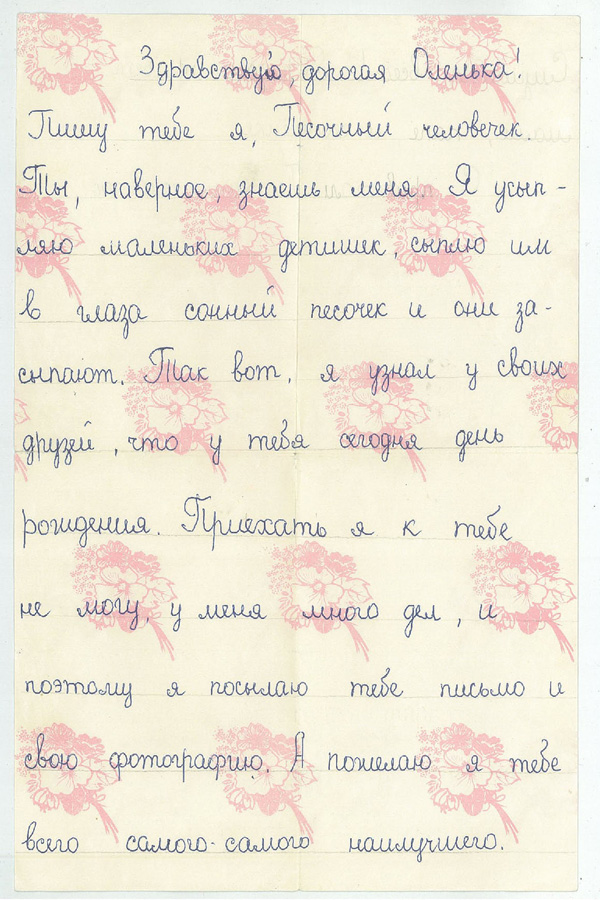 Здравствуй, дорогая Оленька!
Пишу тебе я, Песочный человечек.
Ты, наверное, знаешь меня. Я усып-
ляю маленьких детишек, сыплю им
в глаза сонный песочек и они за-
сыпают. Так вот, я узнал у своих
друзей, что у тебя сегодня день
рождения. Приехать я к тебе
не могу, у меня много дел, и
поэтому я посылаю тебе письмо и
свою фотографию. А пожелаю я тебе
всего самого-самого наилучшего.